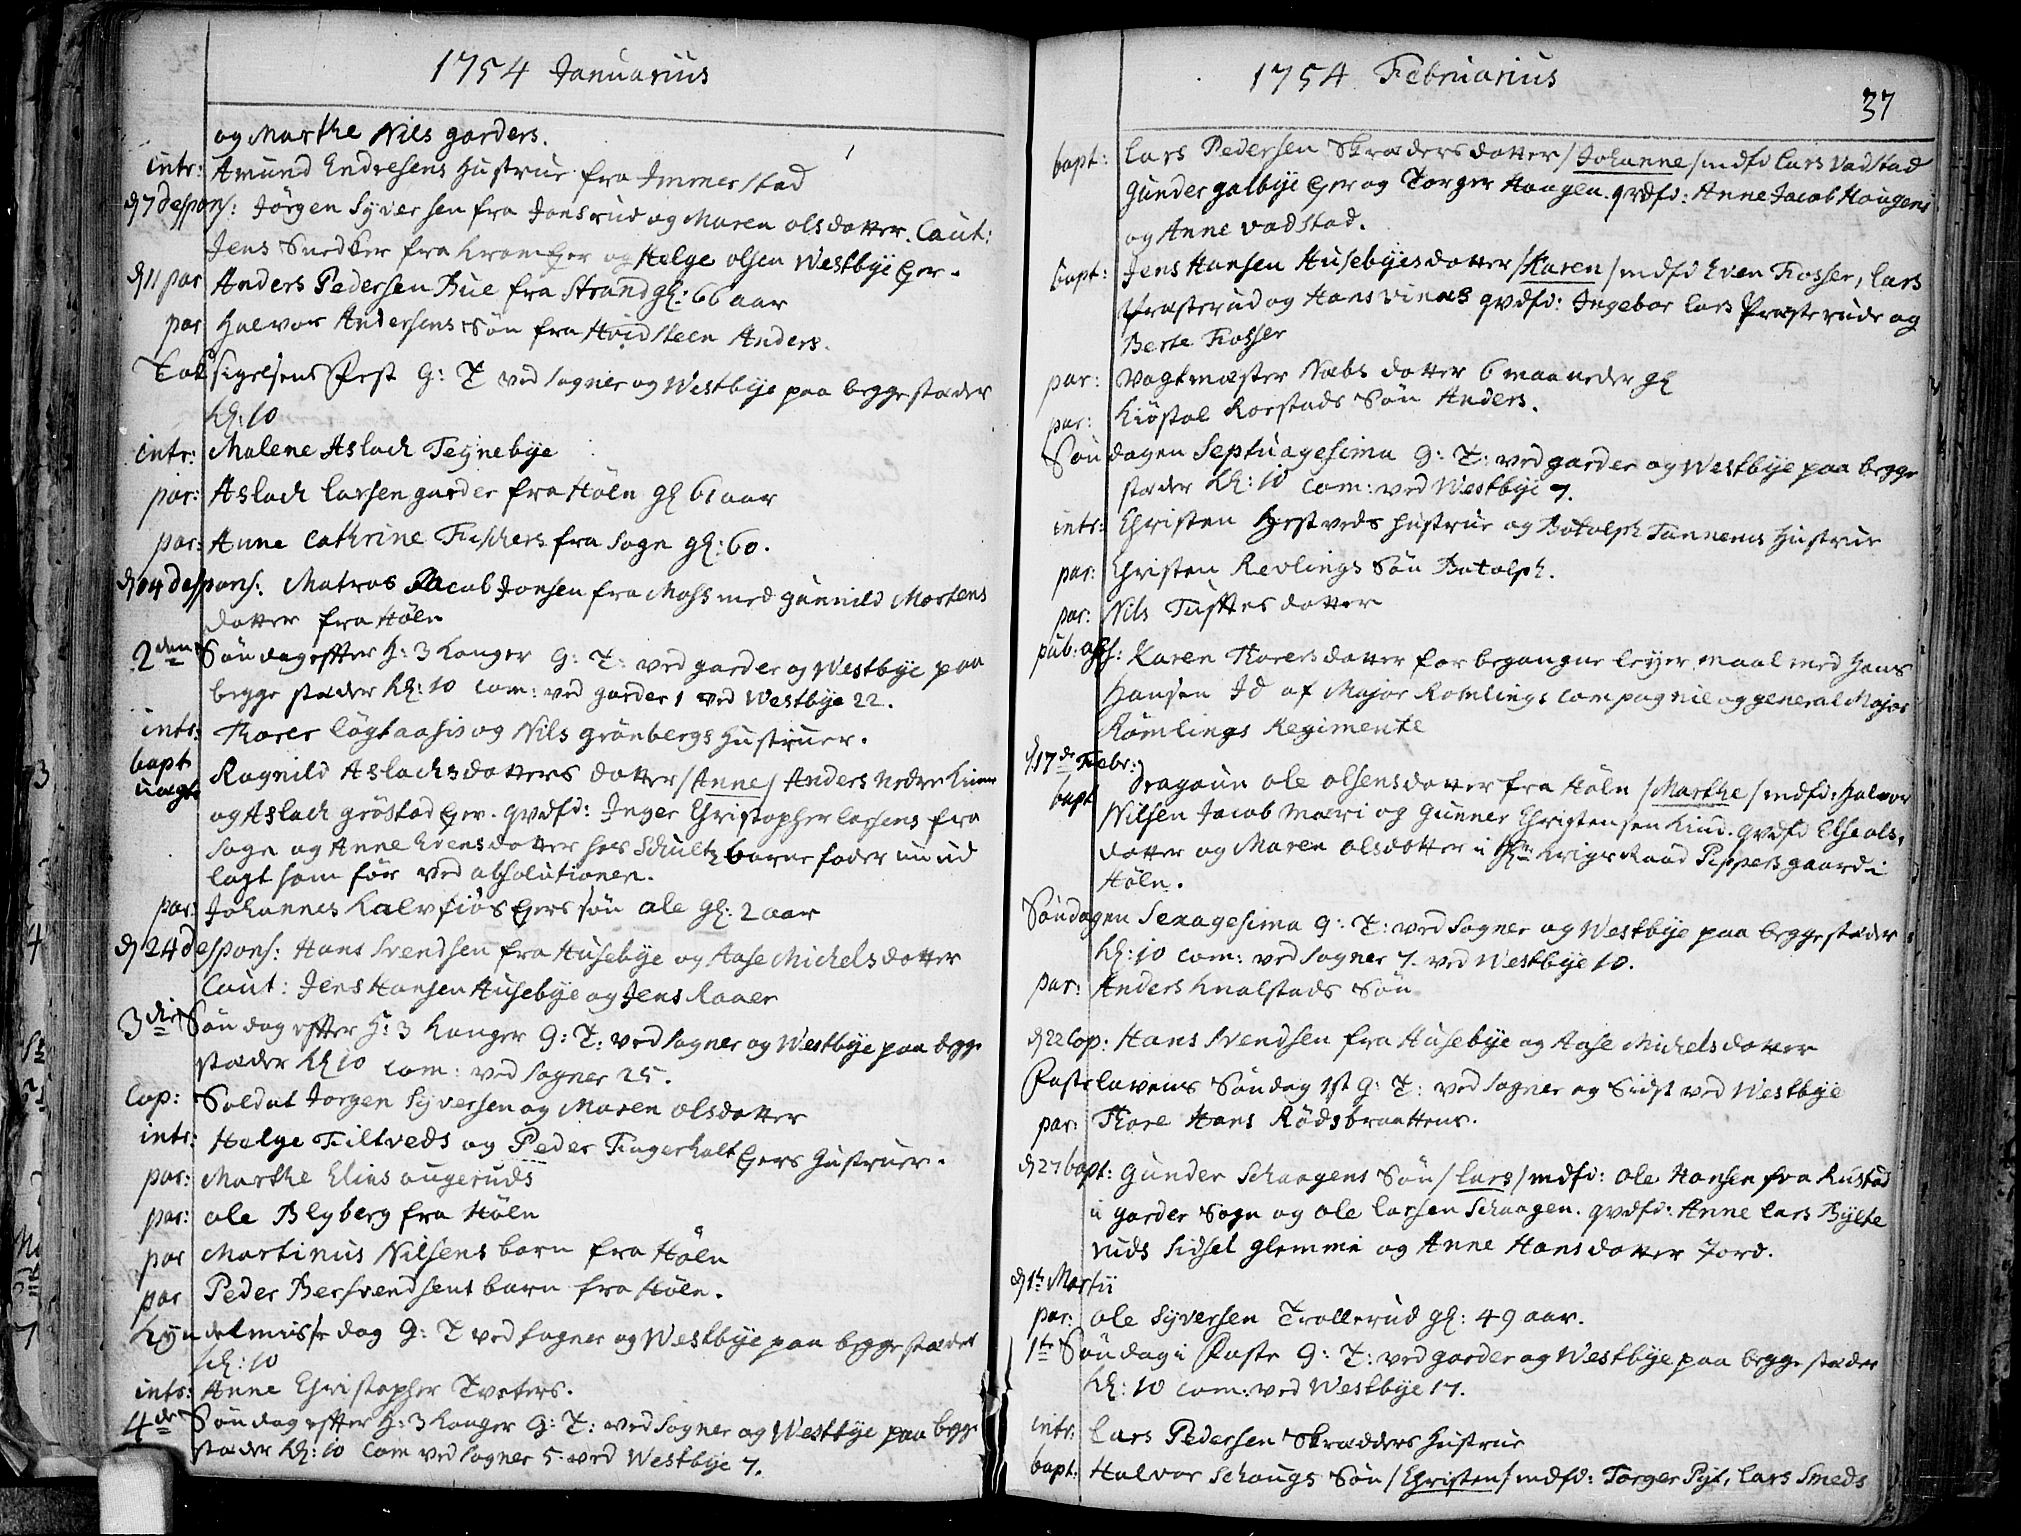 1754 Januarius
og Marthe Nils garders.
intr: Amund Endresens Hustrue fra Immerstad
d 7 despons: Jörgen Syversen fra Jonsrud og Maren olsdatter. Caut:
Jens Snedker fra Krom Eger og Helge olsen Westbye Eger.
d 11 par Anders Pedersen Bue fra Strand gl: 66 aar
par Halvor Andersens Sön fra Hvidsteen Anders.
Taksigelsens Fest G: T ved Sogner og Westbye paa begge stæder
Kl: 10
intr: Malene Aslach Teynebye
par: Aslach Larsen garder fra Höln gl 61 aar
par: Anne Cathrine Fischers fra Sogn gl: 60.
d 14 despons: Matros Jacob Jonsen fra Moss med gunnild Mortens
datter fra Höln
2den Söndag effter H: 3 Konger G: T: ved garder og Westbye paa
begge stæder Kl: 10 Com: ved garder 1 ved Westbye 22.
intr: Thorer Lögtaasis og Nils grönbergs Hustruer.
bapt Ragnild Aslachsdatters datter /Anne/ Anders nedre
uægte og Aslach gröstad Eger. qvdfd: Inger Christopher Larsens fra
Sogn og Anne Evensdatter hos Schultz barnefader
lagt som för ved absolutionen.
par: Johannes Kalvfiös Egers sön ole gl: 2 aar
d 24 despons: Hans Svendsen fra Husebye og Aase Michelsdatter
Caut: Jens Hansen Husebye og Jens Raaer
3die Söndag effter H: 3 Konger G: T: ved Sogner og Westbye paa begge
stæder Kl 10 Com: ved Sogner 25.
Cop: Soldat Jorgen Syversen og Maren olsdatter
intr: Helge Filtveds og Peder Fingerholt Egers Hustruer.
par: Marthe Elins augeruds
par: ole Blyberg fra Höln
par Martinus Nilsens barn fra Höln
par Peder Bersvendsens barn fra Höln.
Kyndelmisse dag G: T ved Sogner og Westbye paa begge stæder
Kl: 10
intr: Anne Christopher Tveters.
4de Söndag effter H: 3 Konger G: T: ved Sogner og Westbye paa begge
stæder Kl: 10 Com ved Sogner 5. ved Westbye 7.
1754 Februarius
37
bapt: Lars Pedersen Skræders datter /Johanne/ mdfd Lars Vadstad
Gunder galbye Eger og Torger Haugen. qvdfd: Anne Jacob Haugens
og Anne Vadstad.
bapt: Jens Hansen Husebyes datter /Karen/ mdfd Even Fosser, Lars
Præsterud og Hans qvdfd: Ingebor Lars Præsterude og
Berte Fosser
par: Vagtmæster Næbs datter 6 maaneder gl
par: Kiöstol Rorstads Sön Anders.
Söndagen Septuagesima G: T: ved garder og Westbye paa begge
stæder Kl: 10 Com: ved Westbye 7.
intr: Christen Hestveds Hustrue og Botolph Tannems Hustrue
par: Christen Revlings Sön Botolph.
par: Nils Tufttes datter
pub: abs: Karen Thoresdatter for begangne leyermaal med Hans
Hansen Id af Major Romlings Compagnie og general Major
Römlings Regimente
d 17de Febr:
bapt Dragoun ole olsens datter fra Höln /Marthe/ mdfd: Halvor
Nilsen Jacob Mæri og Gunner Christensen Lind. qvdfd Else ols,
datter og Maren olsdatter i Hr Krigs Raad Peppers gaard i
Höln.
Söndagen Sexagesima G: T: ved Sogner og Westbye paa begge stæder
Kl: 10 Com: ved Sogner 7. ved Westbye 10.
par: Anders Knalstads Sön
d 22 Cop: Hans Svendsen fra Husebye og Aase Michelsdatter
Fastelavens Söndag 1st G: T: ved Sogner og Sidst ved Westbye
par: Thore Hans Rödsbraattens.
d 27 bapt: Gunder Schaagens Sön /Lars/ mdfd: ole Hansen fra Rustad
i garder Sogn og ole Larsen Schaagen. qvdfd: Anne Lars Bylte
ruds Sidsel Glemmi og Anne Hansdatter Jord.
d 1te Martii
par: ole Syversen Trollerud gl: 49 aar.
1te Söndag i Faste G: T: ved garder og Westbye paa begge stæder
Kl: 10 Com: ved Westbye 17.
intr: Lars Pedersen Skrædders Hustrue
bapt: Halvor Schougs Sön /Christen/ mdfd: Torger Pyt, Lars Smeds